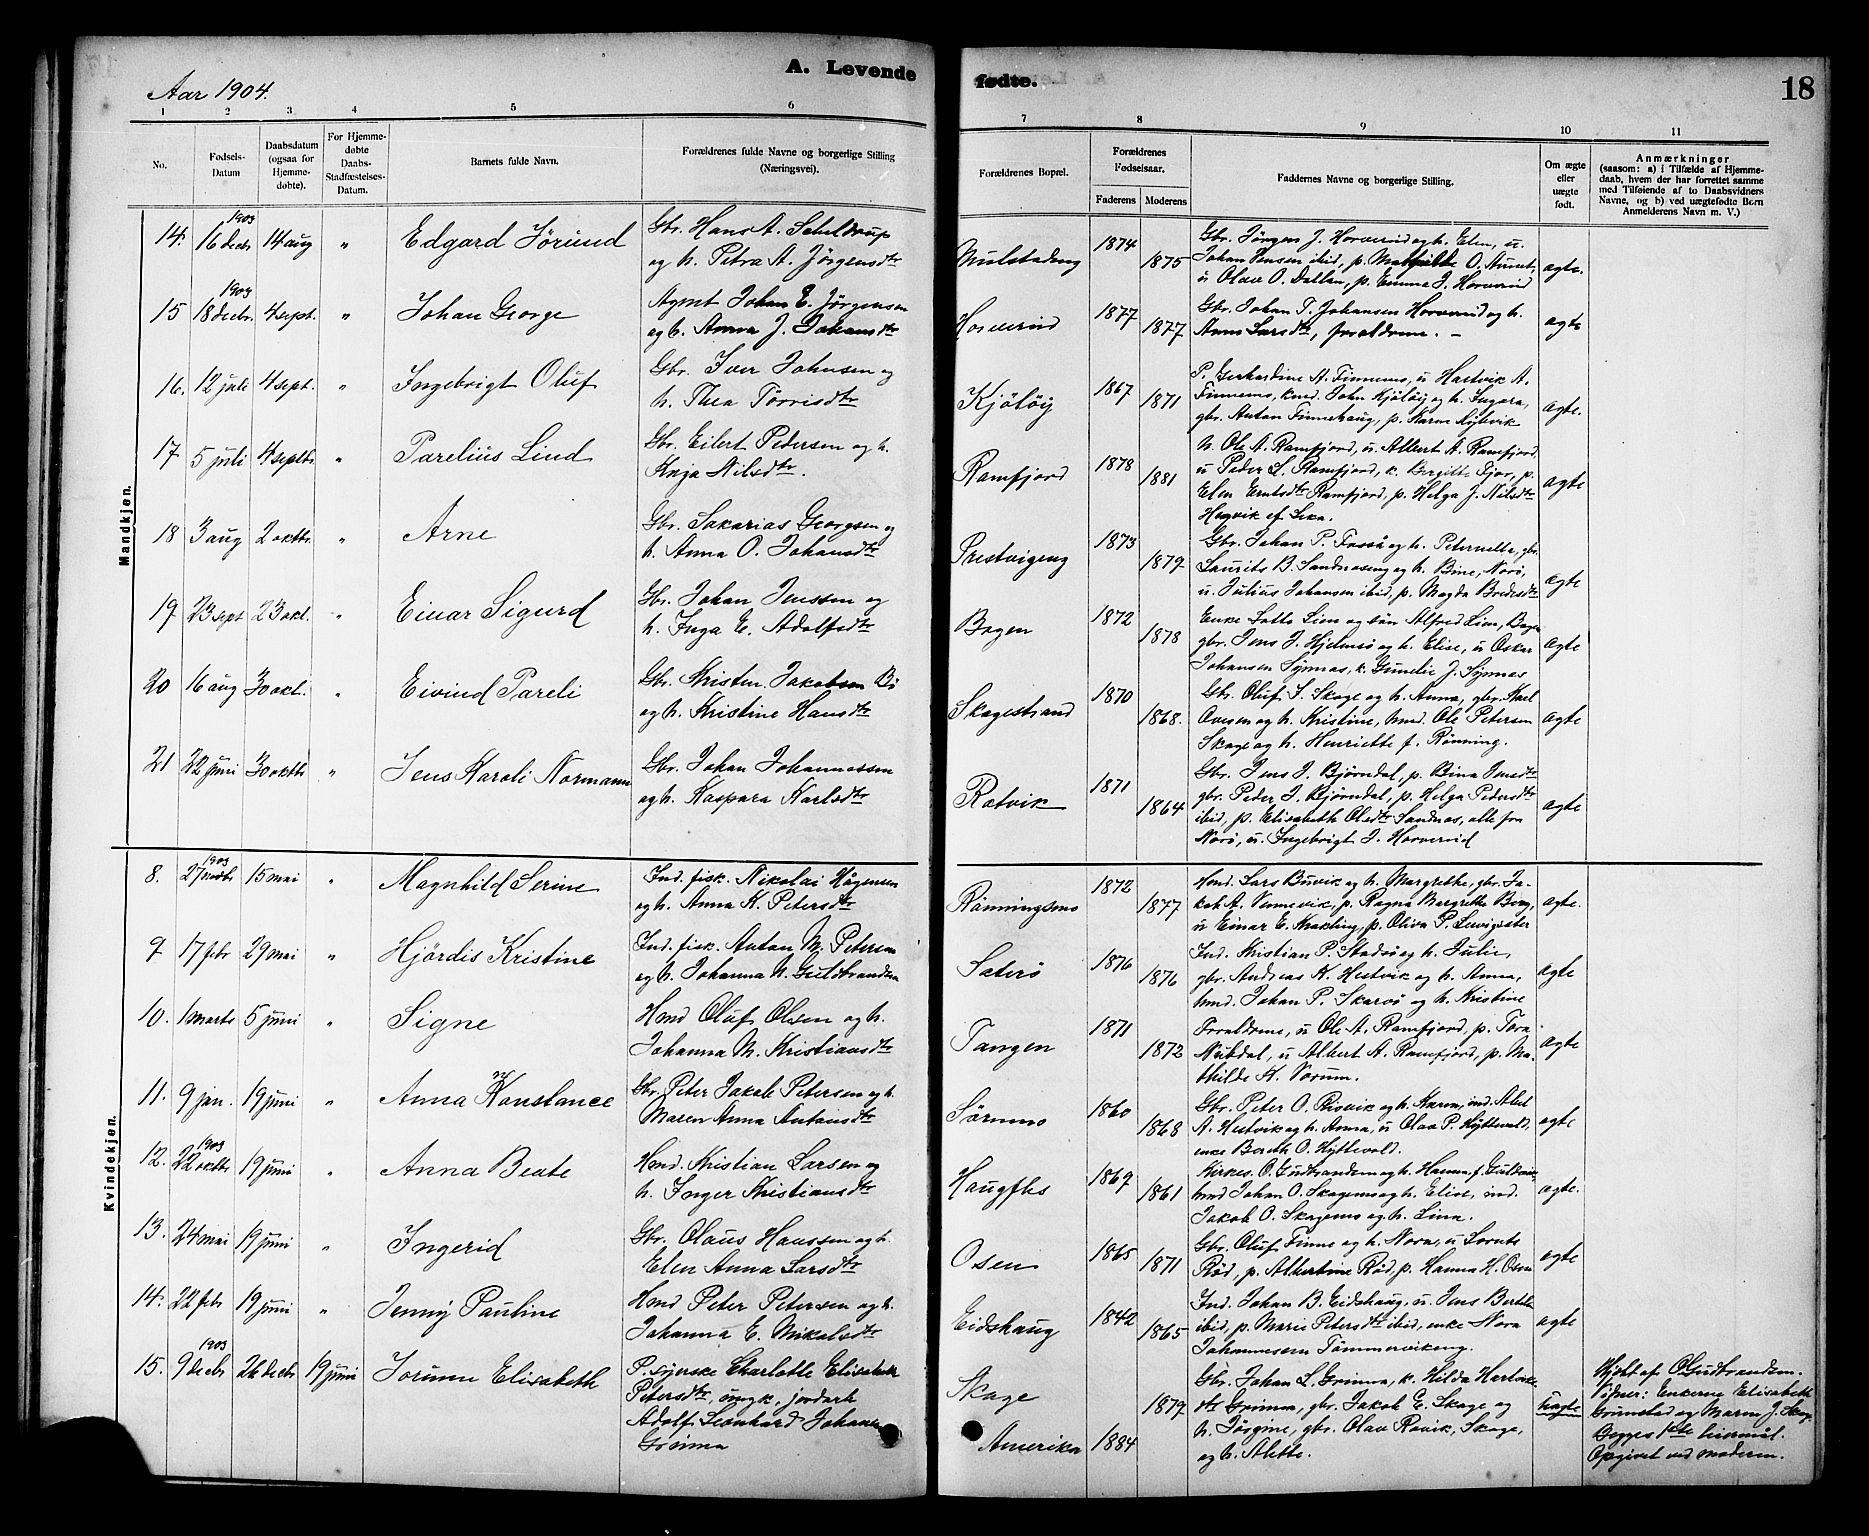 Aar 1904.
A. Levende
fødte.
18
1 2 3 4 5 6
7 8 9 10 11
No.
Fødsels-
Datum
Daabsdatum
(ogsaa for
Hjemme-
døbte).
For Hjemme-
døbte
Daabs-
Stadfæstelses-
Datum.
Barnets fulde Navn.
Forældrenes fulde Navne og borgerlige Stilling
(Næringsvei).
Forældrenes Bopæl.
Forældrenes
Fødselsaar.
Faderens Moderens
Faddernes Navne og borgerlige Stilling.
Om ægte
eller
uægte
født.
Anmærkninger
(saasom: a) i Tilfælde af Hjemme-
daab, hvem der har forrettet samme
med Tilføiende af to Daabsvidners
Navne, og b) ved uægtefødte Børn
Anmelderens Navn m. V.)
Mandkjøn.
14. 1903 16 decb 14 aug " Edgard Jörund
Gbr. Hans A. Scheldrup
og h. Petra A. Jörgensdtr
1874 1875
Gbr. Jörgen J. Horverid og h. Elen, u.
Johan Jensen ibid, p.
u Olav O. Dallan, p. Emma J. Horverid
ægte.
15 1903 18 decbr. 4 sept. " Johan George
Agent Johan E. Jörgensen
og h. Anna J. Johansdtr
Horverid 1877 1877
Gbr. Johan T. Johansen Horverid og h.
Anne Larsdtr, forældrene. -
ægte
16. 12 juli 4 sept. " Ingebrigt Oluf
Gbr. Iver Johnsen og
h. Thea Törrisdtr
Kjölöij 1867 1871
P. Gerhardine A. Finnemo, u Hartvik A.
Finnemo, kmd. John Kjölöij og h. Ingara,
gbr. Anton Finnehaug, p. Karen
ægte.
17 5 juli 4 septbr " Parelius Lind
Gbr. Eilert Pedersen og h.
Kaja Nilsdtr.
Ramfjord 1878 1881
h. Ole A. Ramfjord, u Albert A. Ramfjord
u Peder L. Ramfjord, k. Bergitte Fjær, p.
Elen Ramfjord, p. Helga J. Nilsdtr
Hagvik af Leka.
ægte
18 3 aug 2 oktbr. " Arne
Gbr. Sakarias Georgsen og
h. Anna O. Johansdtr
Prestvigeng 1873 1879
Gbr. Johan P. Fosså og h. Peternella, gbr.
Laurits B. Sandnæseng og h. Bine, Nærö,
u. Julius Johansen ibid, p. Magda
ægte
19 23 sept 23 okt. " Einar Sigurd
Gbr. Johan Jenssen og
h. Inga E. Adolfsdtr
Bogen 1872 1878
Enke Lotte Lien og sön Alfred Lien, Bogen
gbr. Jens J. Hjelmsö og h. Elise, u Oskar
Johansen Synnes, k. Gunelie J. Synnes
ægte
20 16 aug 30 okt. " Eivind Pareli
Gbr. Kristen Jakobsen Bö
og h. Kristine Hansdtr
Skagestrand 1870 1868.
Gbr. Oluf S. Skage og h. Anna, gbr. Karl
Ovesen og h. Kristine, hmd. Ole Petersen
Skage og h. Henriette f. Rönning.
ægte
21 22 juni 30 oktbr " Jens Karoli Normann
Gbr. Johan Johannessen
og h. Kaspara Karlsdtr
Rotvik 1871 1864
Gbr. Jens J. Björndal, p. Bina Jensdtr
gbr. Peder J. Björndal, p. Helga Pedersdtr
ibid, p. Elisabeth Olsdtr Sandnes, alle fra
Nærö, u. Ingebrigt J. Horverid
ægte
Kvindekjøn.
8. 1903 27 novbr 15 mai " Magnhild Serine
Ind. fisk. Nikolai Hågensen
og h. Anna K. Petersdtr
Rönningsmo 1872 1877
Hmd. Lars Buvik og h. Margrethe, gbr. Ja-
kob A. Vennevik, p. Ragna Bergitte
u Einar E. Kvakling, p. Oliva P.
ægte.
9 17 febr 29 mai " Hjördis Kristine
Ind. fisk. Anton M. Petersen
og h. Johanna N. Guldbrandsen
Saterö 1876 1876
Ind. Kristian P. Stadsö og h. Julie,
gbr. Andreas K. Hestvik og h. Anna,
hmd. Johan P. Skarsö og h. Kristine
ægte
10. 1 marts 5 juni " Signe
Hmd Oluf Olsen og h.
Johanna M. Kristiansdtr
Tangen 1871 1872
Forældrene, u Ole A. Ramfjord, p. Tora
Nubdal, u Albert A. Ramfjord, p. Ma-
thilde K. Vorum.
ægte
11. 9 jan. 19 juni " Anna Konstance
Gbr. Peter Jakob Petersen og h.
Maren Anna Antonsdtr
Sörmo 1860 1868
Gbr. Peter O. Risvik og h. Karen, ind. Abel
A. Hestvik og h. Anna, u Olav P. Hyttevold.
enke Bereth O. Hyttevold.
ægte
12. 1903 22 oktbr 19 juni " Anna Beate
Hmd. Kristian Larsen og
h. Inger Kristiansdtr
Haugfles 1869 1861
Kirkes. O. Gudbrandsen og h. Hanna f. Guldvig,
hmd Johan O. Skagemo og h. Elise, ind.
Jakob O. Skagemo og h. Lina.
ægte.
13. 24 mai 19 juni " Ingerid
Gbr. Olaus Hanssen og h.
Elen Anna Larsdtr
Osen 1865 1871
Gbr. Oluf Finne og h. Nora, u Lorents
Röd, p. Albertine Röd, p. Hanna H. Osen
ægte
14. 22 febr 19 juni " Jenny Pauline
Hmd Peter Petersen og h.
Johanna E. Mikalsdtr
Eidshaug 1842 1865
Ind. Johan B. Eidshaug, u. Jens Bertils
ibid, p. Marie Petersdtr ibid, enke Nora
Johannesen Tömmervikeng.
ægte
15. 1903 9 decbr 26 decbr 19 juni Jorunn Elisabeth
P. syerske Charlotte Elisabeth
Petersdtr, ungk. jordarb
Adolf Leonhard Johansen
Grönna
Skage
Amerika 1884 1879
Gbr. Johan L. Grönna, k. Hilda Hartviks-
dtr Grönna, gbr. Jakob E. Skage og
h. Jörgine, gbr. Olav Rovik, Skage,
og h. Alette.
uægte
Hjdbt af O Gudbrandsen.
Vidner: Enkerne Elisabeth
Grönstad og Maren J. Skage
Begges 1ste leiermål.
Opgivet ved moderen.